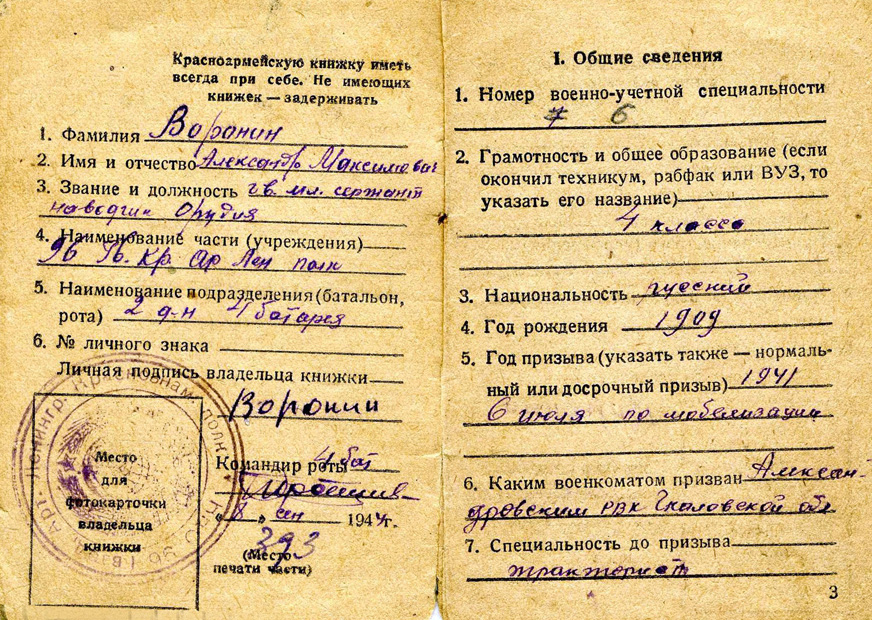 Красноармейскую книжку иметь
всегда при себе. Не имеющих
книжек — задерживать
1. Фамилия Воронин
2. Имя и отчество Александр Максимович
3. Звание и должность гв. мл. сержант
наводчик орудия
4. Наименование части (учреждения)
96 Гв. Кр. Ар Лен полк
5. Наименование подразделения (батальон,
рота) 2 д-н 4 батарея
6. № личного знака
Личная подпись владельца книжки
Воронин
Командир роты 4 бат
„8 „ сен 1944г.
393
(Место
печати части)
Место
для
фотокарточки
владельца
книжки
I. Общие сведения
1. Номер военно-учетной специальности
6
2. Грамотность и общее образование (если
окончил техникум, рабфак или ВУЗ, то
указать его название)
4 класса
3. Национальность русский
4. Год рождения 1909
5. Год призыва (указать также — нормаль-
ный или досрочный призыв) 1941
6 июля по мобелизации
6. Каким военкоматом призван Алексан-
дровским РВК Чкаловской обл
7. Специальность до призыва
тракторист
3